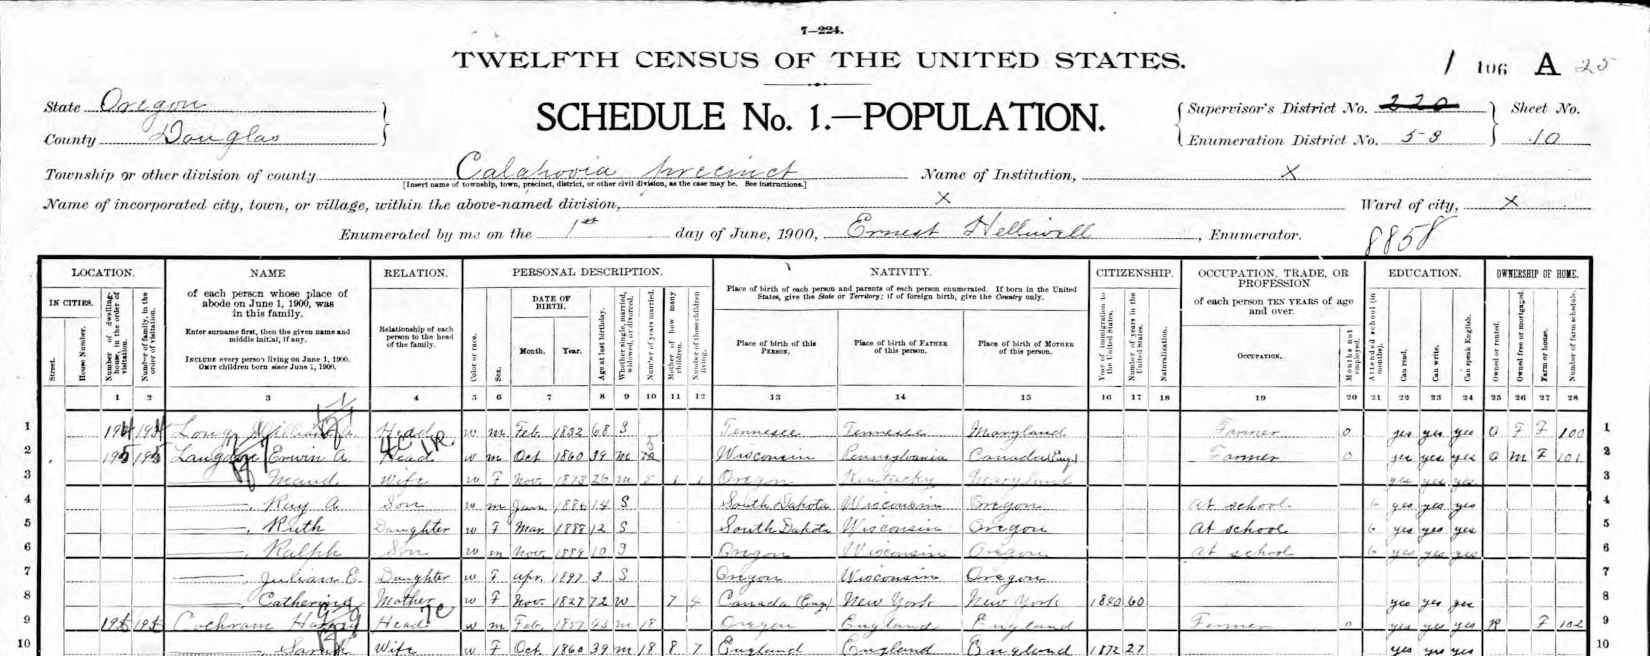 7—224.
TWELFTH CENSUS OF THE UNITED STATES.
1 106 A 25
State Oregon
County Douglas
SCHEDULE No. 1.—POPULATION.
Supervisor's District No. 220
Enumeration District No. 53
Sheet No.
10
Township or other division of county Calapooia precinct
[Insert name of township, town, precinct, district, or other civil division, as the case may be. See instructions.]
Name of Institution, X
Name of incorporated city, town, or village, within the above-named division, X
Ward of city, X
Enumerated by me on the 1st day of June, 1900, Ernest Helliwell, Enumerator.
8858
LOCATION.
IN CITIES.
Street.
House Number.
Number of dwelling-house, in the order of visitation.
Number of family, in the order of visitation.
NAME
of each person whose place of abode on June 1, 1900, was in this family.
Enter surname first, then the given name and middle initial, if any.
INCLUDE every person living on June 1, 1900.
OMIT children born since June 1, 1900.
RELATION.
Relationship of each person to the head of the family.
PERSONAL DESCRIPTION.
Color or race.
Sex.
DATE OF BIRTH.
Month.
Year.
Age at last birthday.
Whether single, married, widowed, or divorced.
Number of years married.
Mother of how many children.
Number of these children living.
NATIVITY.
Place of birth of each person and parents of each person enumerated. If born in the United States, give the State or Territory; if of foreign birth, give the Country only.
Place of birth of this PERSON.
Place of birth of FATHER of this person.
Place of birth of MOTHER of this person.
CITIZENSHIP.
Year of immigration to the United States.
Number of years in the United States.
Naturalization.
OCCUPATION, TRADE, OR PROFESSION
of each person TEN YEARS of age and over.
OCCUPATION.
Months not employed.
EDUCATION.
Attended school (in months).
Can read.
Can write.
Can speak English.
OWNERSHIP OF HOME.
Owned or rented.
Owned free or mortgaged.
Farm or house.
Number of farm schedule.
1 2 3 4 5 6 7 8 9 10 11 12 13 14 15 16 17 18 19 20 21 22 23 24 25 26 27 28
1 194 194 Long William Head w m Feb 1832 68 S Tennesee Tennesee Maryland Farmer 0 yes yes yes O F F 100 1
2 195 195 Langdon Erwin A. Head w m Oct 1860 39 m Wisconsin Pennsylvania Canada (Eng) Farmer 0 yes yes yes O M F 101 2
3 Maud Wife w F Nov. 1873 26 m 1 1 Oregon Kentucky Maryland yes yes yes 3
4 Roy A. Son w m Jan 1886 14 S South Dakota Wisconsin Oregon At school 6 yes yes yes 4
5 Ruth Daughter w F Mar 1888 12 S South Dakota Wisconsin Oregon At school 6 yes yes yes 5
6 Ralph Son w m Nov. 1889 10 S Oregon Wisconsin Oregon At school 6 yes yes yes 6
7 Julian E. Daughter w F Apr. 1897 3 S Oregon Wisconsin Oregon 7
8 Catherine Mother w F Nov. 1827 72 w 7 4 Canada (Eng) New York New York 1840 60 yes yes yes 8
9 Cochran Harry Head w m Feb. 1857 43 m 18 Oregon England England Farmer 0 yes yes yes R F 102 9
10 Sarah Wife w F Oct. 1860 39 m 18 8 7 England England England 1872 27 yes yes yes 10